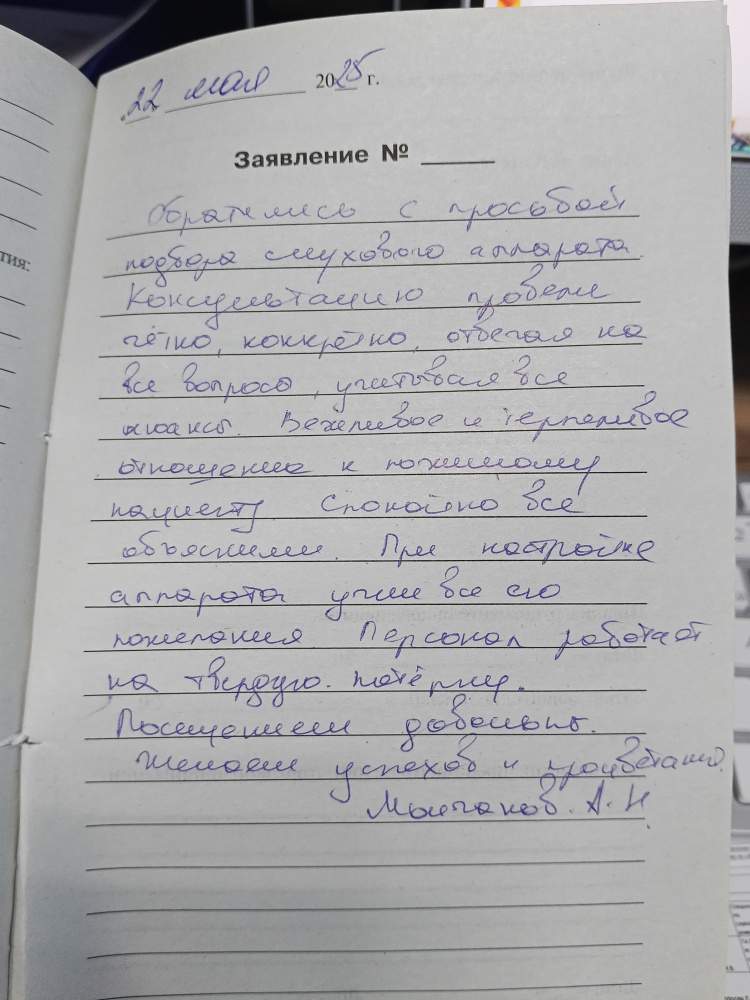 22 мая 2025 г.
Заявление № ____
Обратились с просьбой
подбора слухового аппарата
Консультацию провели
чётко, конкретно, отвечая на
все вопросы, учитывая все
нюансы. Вежливое и терпеливое
отношение к пожилому
пациенту Спокойно всё
объяснили. При настройке
аппарата учли все его
пожелания. Персонал работает
на твердую. пятёрку.
Посещением довольны.
Желаем успехов и процветания.
Молчанов. А. Н
тия: